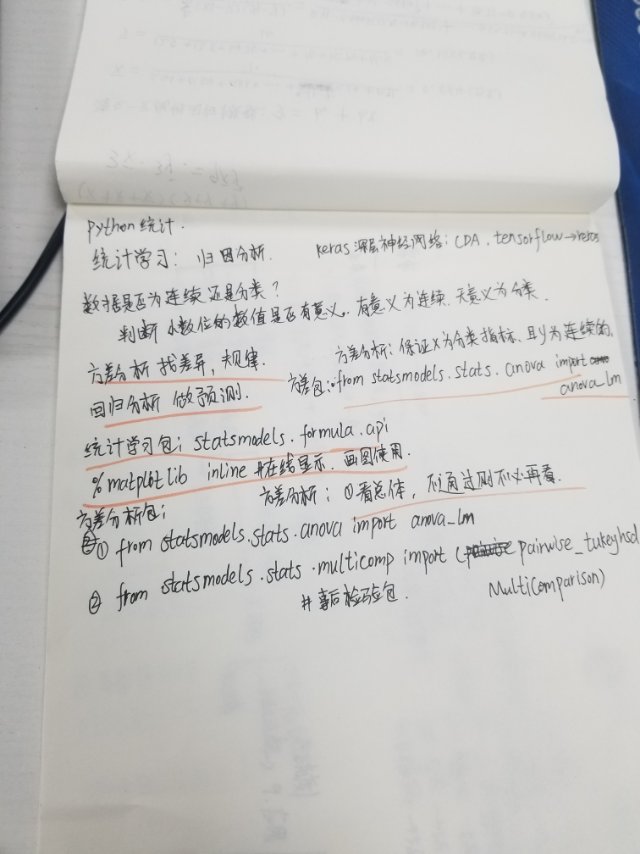 python 统计.
统计学习: 归因分析. keras 深层神经网络: CDA. tensorflow→keras
数据是否为连续还是分类?
判断小数位的数值是否有意义. 有意义为连续. 无意义为分类.
方差分析 找差异, 规律. 方差分析: 保证X为分类指标. 且y为连续的.
回归分析 做预测. 方差包: from statsmodels.stats.anova import anova_lm
统计学习包: statsmodels.formula.api
%matplotlib inline #在线显示. 画图使用.
方差分析: ①看总体, 不通过则不必再看.
方差分析包:
① from statsmodels.stats.anova import anova_lm
② from statsmodels.stats.multicomp import (pairwise_tukeyhsd
MultiComparison)
#事后检验包.